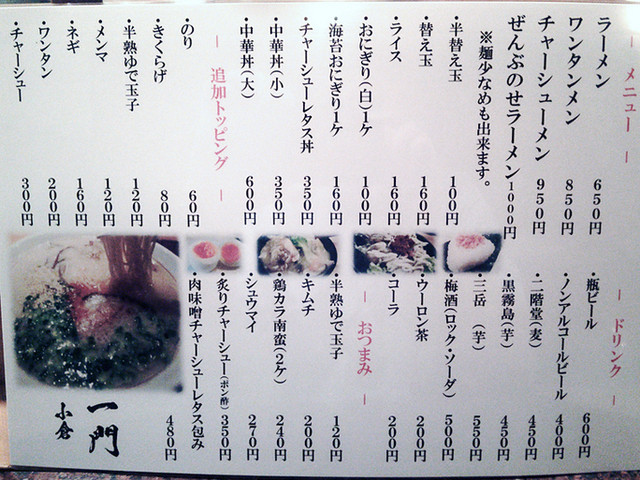 メニュー
ラーメン 650円
ワンタンメン 850円
チャーシューメン 950円
ぜんぶのせラーメン 1000円
※麺少なめも出来ます。
・半替え玉 100円
・替え玉 160円
・ライス 160円
・おにぎり(白)1ケ 100円
・海苔おにぎり1ケ 160円
・チャーシューレタス丼 350円
・中華丼(小) 350円
・中華丼(大) 600円
追加トッピング
・のり 60円
・きくらげ 80円
・半熟ゆで玉子 120円
・メンマ 120円
・ネギ 160円
・ワンタン 200円
・チャーシュー 300円
ドリンク
・瓶ビール 600円
・ノンアルコールビール 400円
・二階堂(麦) 450円
・黒霧島(芋) 450円
・三岳(芋) 550円
・梅酒(ロック・ソーダ) 500円
・ウーロン茶 200円
・コーラ 200円
おつまみ
・半熟ゆで玉子 120円
・キムチ 200円
・鶏カラ南蛮(2ケ) 240円
・シュウマイ 270円
・炙りチャーシュー(ポン酢) 350円
・肉味噌チャーシューレタス包み 480円
一門
小倉